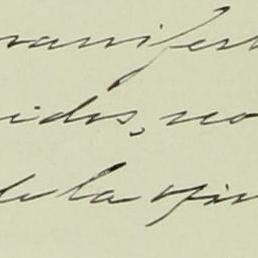 manifest
idos, no
de la vin